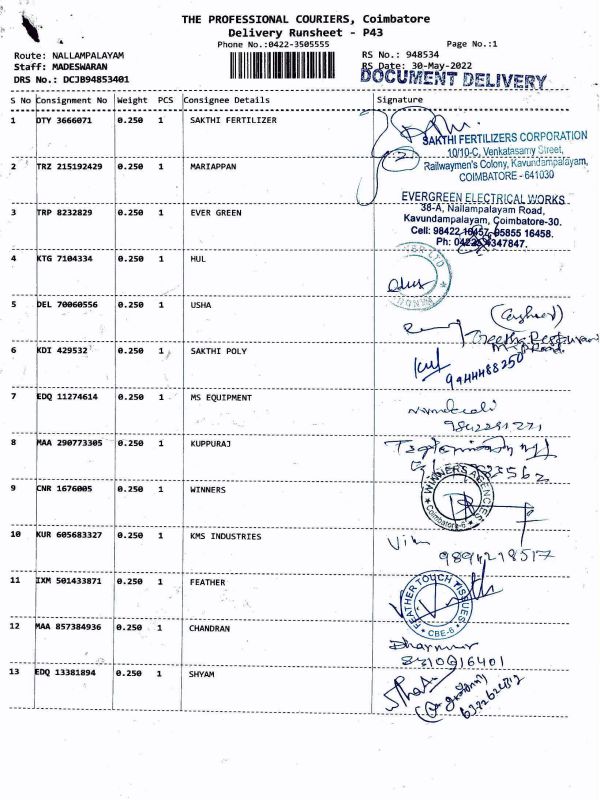 THE PROFESSIONAL COURIERS, Coimbatore
Delivery Runsheet - P43
Phone No.:0422-3505555
Page No.:1
Route: NALLAMPALAYAM
RS No.: 948534
Staff: MADESWARAN
RS Date: 30-May-2022
DRS No.: DCJB94853401
DOCUMENT DELIVERY
S No Consignment No Weight PCS Consignee Details Signature
1 DTY 3666071 0.250 1 SAKTHI FERTILIZER
SAKTHI FERTILIZERS CORPORATION
10/10-C, Venkatasamy Street,
Railwaymen's Colony, Kavundampalayam,
COIMBATORE - 641030
2 TRZ 215192429 0.250 1 MARIAPPAN
2
EVERGREEN ELECTRICAL WORKS
38-A, Nallampalayam Road,
Kavundampalayam, Coimbatore-30.
Cell: 98422 19457, 95855 16458.
Ph: 0422 4347847.
3 TRP 8232829 0.250 1 EVER GREEN
4 KTG 7104334 0.250 1 HUL
5 DEL 70060556 0.250 1 USHA
(Casheer)
6 KDI 429532 0.250 1 SAKTHI POLY
9944488250
7 EDQ 11274614 0.250 1 MS EQUIPMENT
8 MAA 290773305 0.250 1 KUPPURAJ
9 CNR 1676005 0.250 1 WINNERS
WINNERS AGENCIES
Coimbatore-6
10 KUR 605683327 0.250 1 KMS INDUSTRIES
9894218517
11 IXM 501433871 0.250 1 FEATHER
FEATHER TOUCH TISSUES
CBE-6
12 MAA 857384936 0.250 1 CHANDRAN
13 EDQ 13381894 0.250 1 SHYAM